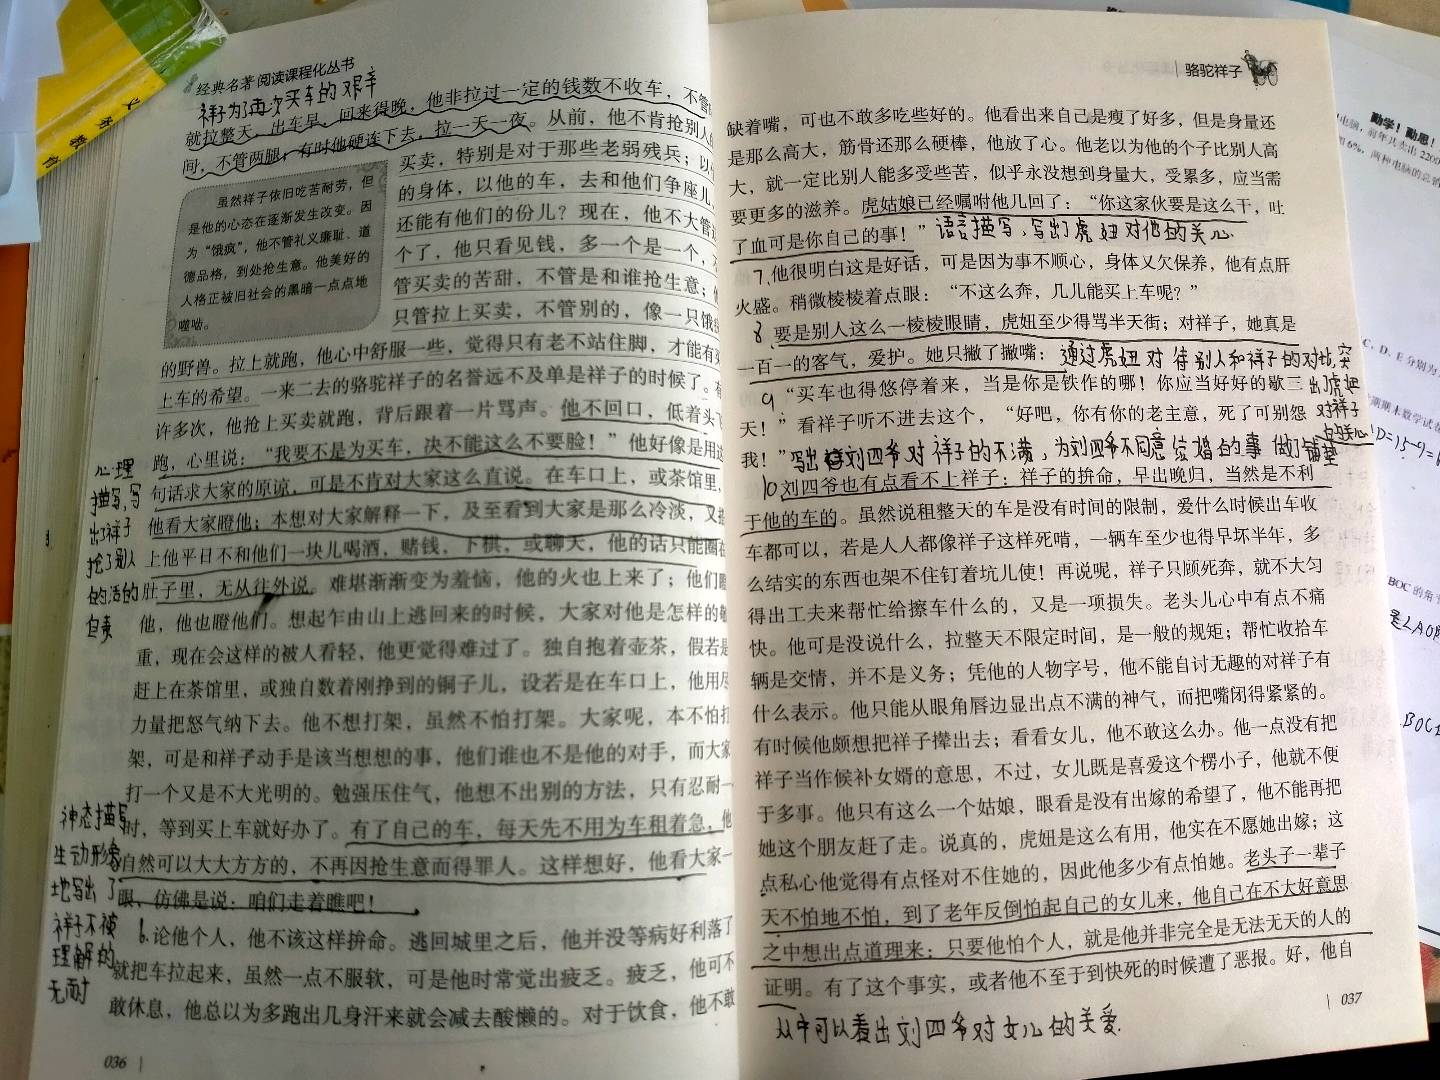 经典名著阅读课程化丛书
祥子为了再次买车的艰辛
就拉整天，出车早，回来得晚，他非拉过一定的钱数不收车，不管
间，不管两腿；有时他硬连下去，拉一天一夜。从前，他不肯抢别人
买卖，特别是对于那些老弱残兵；以
的身体，以他的车，去和他们争座儿，
还能有他们的份儿？现在，他不大管这
个了，他只看见钱，多一个是一个，不
管买卖的苦甜，不管是和谁抢生意；他
只管拉上买卖，不管别的，像一只饿疯
虽然祥子依旧吃苦耐劳，但
是他的心态在逐渐发生改变。因
为“饿疯”，他不管礼义廉耻、道
德品格，到处抢生意。他美好的
人格正被旧社会的黑暗一点点地
噬咄。
的野兽。拉上就跑，他心中舒服一些，觉得只有老不站住脚，才能有买
上车的希望。一来二去的骆驼祥子的名誉远不及单是祥子的时候了。有
许多次，他抢上买卖就跑，背后跟着一片骂声。他不回口，低着头飞
跑，心里说：“我要不是为买车，决不能这么不要脸！”他好像是用这
句话求大家的原谅，可是不肯对大家这么直说。在车口上，或茶馆里，
他看大家瞪他；本想对大家解释一下，及至看到大家是那么冷淡，又搭
上他平日不和他们一块儿喝酒，赌钱，下棋，或聊天，他的话只能圈在
肚子里，无从往外说。难堪渐渐变为羞恼，他的火也上来了；他们瞪
他，他也瞪他们。想起乍由山上逃回来的时候，大家对他是怎样的敬
重，现在会这样的被人看轻，他更觉得难过了。独自抱着壶茶，假若是
赶上在茶馆里，或独自数着刚挣到的铜子儿，设若是在车口上，他用尽
力量把怒气纳下去。他不想打架，虽然不怕打架。大家呢，本不怕打
架，可是和祥子动手是该当想想的事，他们谁也不是他的对手，而大家
打一个又是不大光明的。勉强压住气，他想不出别的方法，只有忍耐一
时，等到买上车就好办了。有了自己的车，每天先不用为车租着急，他
自然可以大大方方的，不再因抢生意而得罪人。这样想好，他看大家一
眼，仿佛是说：咱们走着瞧吧！
6.论他个人，他不该这样拚命。逃回城里之后，他并没等病好利落了
就把车拉起来，虽然一点不服软，可是他时常觉出疲乏。疲乏，他可不
敢休息，他总以为多跑出几身汗来就会减去酸懒的。对于饮食，他不敢
心理
描写，写
出了祥子
抢了别人
的活的
自责
神态描写
生动形象
地写出了
祥子不被
理解的
无耐
036
骆驼祥子
缺着嘴，可也不敢多吃些好的。他看出来自己是瘦了好多，但是身量还
是那么高大，筋骨还那么硬棒，他放了心。他老以为他的个子比别人高
大，就一定比别人能多受些苦，似乎永没想到身量大，受累多，应当需
要更多的滋养。虎姑娘已经嘱咐他几回了：“你这家伙要是这么干，吐
了血可是你自己的事！”语言描写，写出了虎妞对他的关心
7.他很明白这是好话，可是因为事不顺心，身体又欠保养，他有点肝
火盛。稍微棱棱着点眼：“不这么奔，几儿能买上车呢？”
8.要是别人这么一棱棱眼睛，虎妞至少得骂半天街；对祥子，她真是
一百一的客气，爱护。她只撇了撇嘴：通过虎妞对待别人和祥子的对比，突
出了虎妞
对祥子
的关心
9.“买车也得悠停着来，当是你是铁作的哪！你应当好好的歇三
天！”看祥子听不进去这个，“好吧，你有你的老主意，死了可别怨
我！”写出刘四爷对祥子的不满，为刘四爷不同意结婚的事做了铺垫
10.刘四爷也有点看不上祥子：祥子的拚命，早出晚归，当然是不利
于他的车的。虽然说租整天的车是没有时间的限制，爱什么时候出车收
车都可以，若是人人都像祥子这样死啃，一辆车至少也得早坏半年，多
么结实的东西也架不住钉着坑儿使！再说呢，祥子只顾死奔，就不大匀
得出工夫来帮忙给擦车什么的，又是一项损失。老头儿心中有点不痛
快。他可是没说什么，拉整天不限定时间，是一般的规矩；帮忙收拾车
辆是交情，并不是义务；凭他的人物字号，他不能自讨无趣的对祥子有
什么表示。他只能从眼角唇边显出点不满的神气，而把嘴闭得紧紧的。
有时候他颇想把祥子撵出去；看看女儿，他不敢这么办。他一点没有把
祥子当作候补女婿的意思，不过，女儿既是喜爱这个愣小子，他就不便
于多事。他只有这么一个姑娘，眼看是没有出嫁的希望了，他不能再把
她这个朋友赶了走。说真的，虎妞是这么有用，他实在不愿她出嫁；这
点私心他觉得有点怪对不住她的，因此他多少有点怕她。老头子一辈子
天不怕地不怕，到了老年反倒怕起自己的女儿来，他自己在不大好意思
之中想出点道理来：只要他怕个人，就是他并非完全是无法无天的人的
证明。有了这个事实，或者他不至于到快死的时候遭了恶报。好，他自
从中可以看出刘四爷对女儿的关爱.
037
勤学！勤思！
C、D、E分别为
期期末数学试卷
BOC的角平